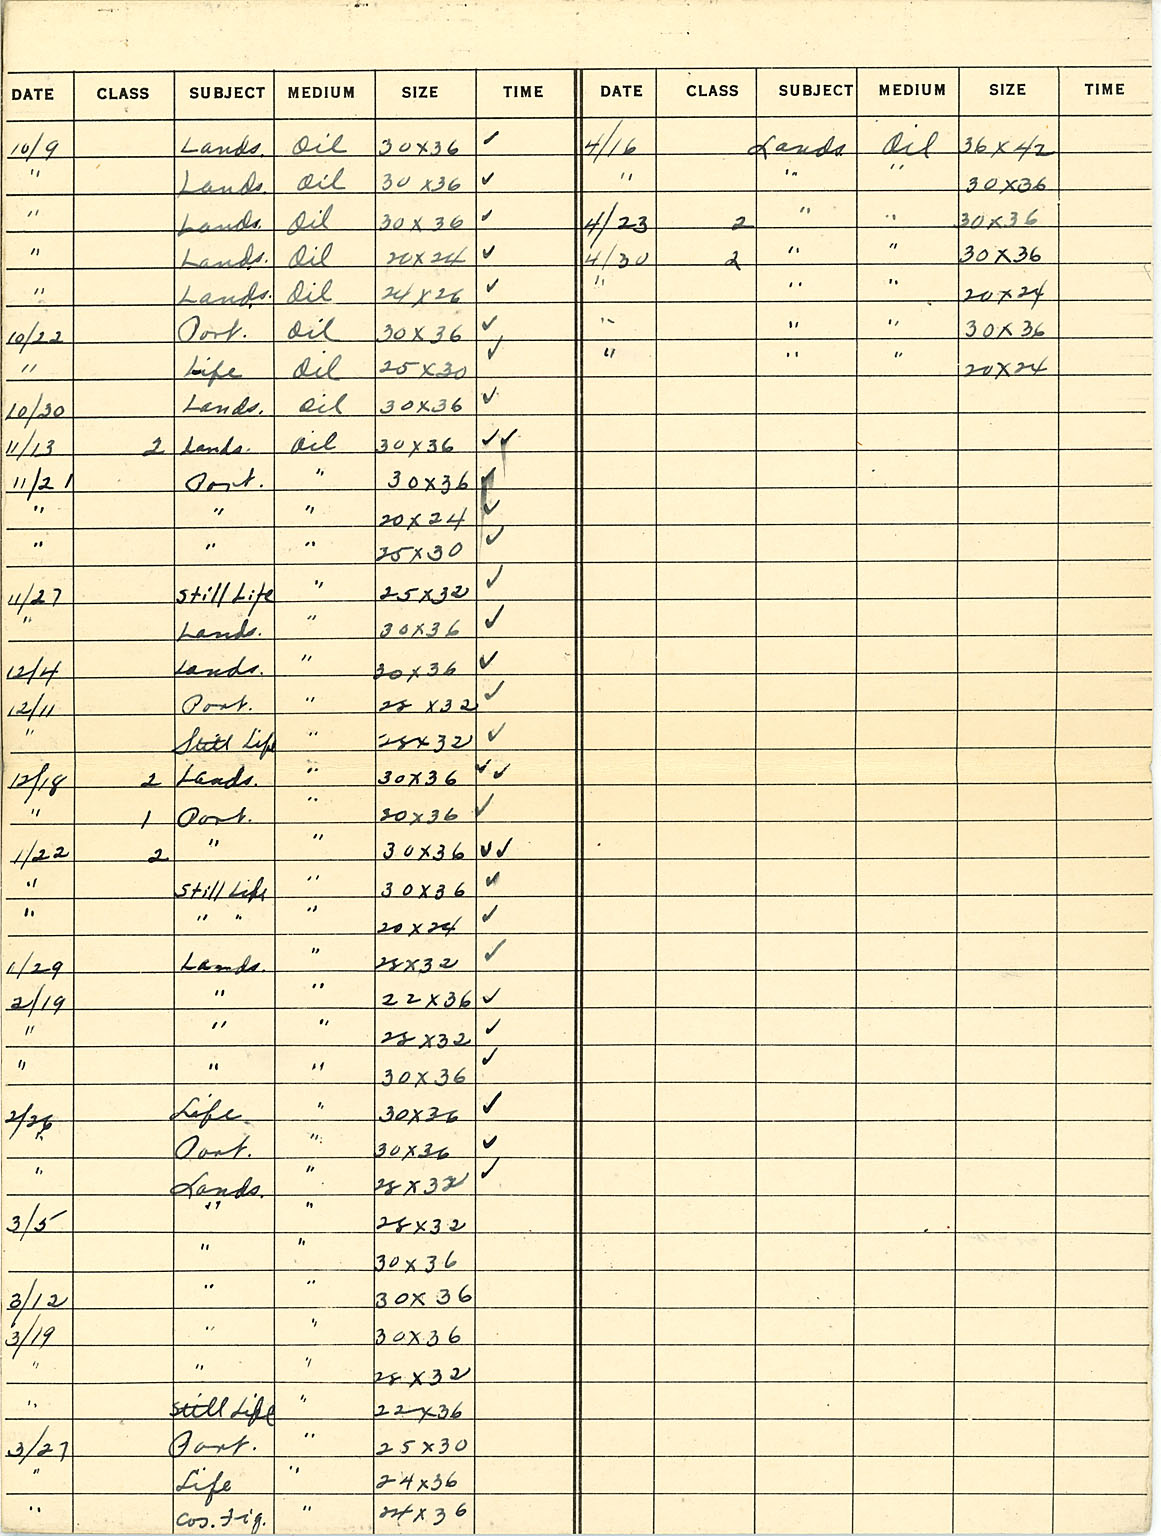 DATE CLASS SUBJECT MEDIUM SIZE TIME DATE CLASS SUBJECT MEDIUM SIZE TIME
10/9 Lands. Oil 30x36 ✓ 4/16 Lands. Oil 36x42
" Lands. Oil 30x36 ✓ " " " 30x36
" Lands. Oil 30x36 ✓ 4/23 2 " " 30x36
" Lands. Oil 20x24 ✓ 4/30 2 " " 30x36
" Lands. Oil 24x26 ✓ " " " 20x24
10/22 Port. Oil 30x36 ✓ " " " 30x36
" Life Oil 25x30 ✓ " " " 20x24
10/30 Lands. Oil 30x36 ✓
11/13 2 Lands. Oil 30x36 ✓✓
11/21 Port. " 30x36 ✓
" " " 20x24 ✓
" " " 25x30 ✓
11/27 Still Life " 25x32 ✓
" Lands. " 30x36 ✓
12/4 Lands. " 30x36 ✓
12/11 Port. " 28x32 ✓
" Still Life " 28x32 ✓
12/18 2 Lands. " 30x36 ✓✓
" 1 Port. " 30x36 ✓
1/22 2 " " 30x36 ✓✓
" Still Life " 30x36 ✓
" " " " 20x24 ✓
1/29 Lands. " 28x32 ✓
2/19 " " 22x36 ✓
" " " 28x32 ✓
" " " 30x36 ✓
2/26 Life " 30x36 ✓
" Port. " 30x36 ✓
" Lands. " 28x32 ✓
3/5 " " 28x32
" " 30x36
3/12 " " 30x36
3/19 " " 30x36
" " " 28x32
" Still Life " 22x36
3/27 Port. " 25x30
" Life " 24x36
" Cos. Fig. " 24x36